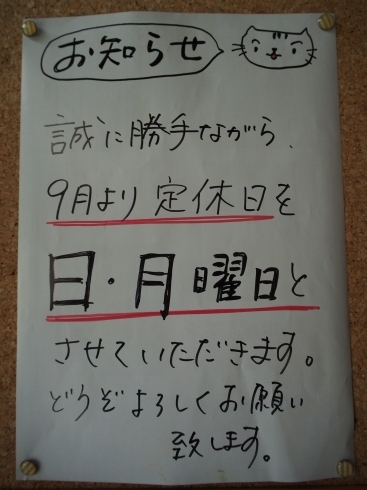 お知らせ
誠に勝手ながら、
9月より定休日を
日・月曜日と
させていただきます。
どうぞよろしくお願い
致します。